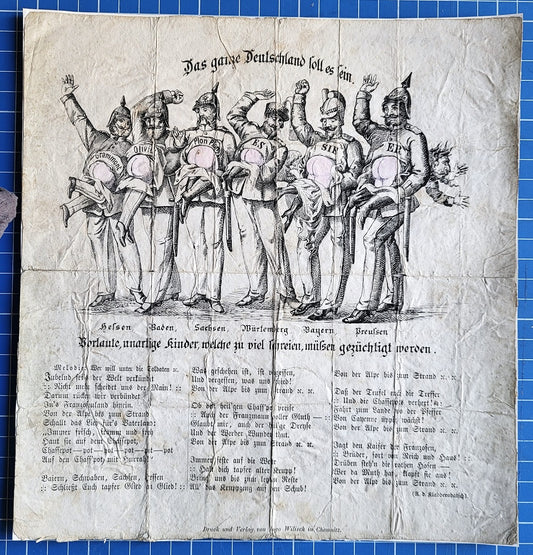 Das ganze Deutschland soll es sein.
Grammont
Olivier
Plon Plon
ES
SIE
ER
Hessen Baden, Sachsen, Würtemberg Bayern Preußen
Vorlaute, unartige Kinder, welche zu viel schreien, müssen gezüchtigt werden.
Melodie: Wer will unter die Soldaten ꝛc.
Jubelnd sei's der Welt verkündet
:: Nicht mehr scheidet uns der Main! ::
Darum rücken wir verbündet
In's Franzosenland hinein.
Von der Alpe bis zum Strand
Schallt das Lied für's Vaterland:
„Immer frisch, fromm und frei
Haut sie auf den Chassepot,
Chassepot—pot—pot—pot—pot—pot
Auf den Chassepot mit Hurrah!“
Baiern, Schwaben, Sachsen, Hessen
:: Schließt Euch tapfer Glied an Glied! ::
Was geschehen ist, ist vergessen,
Und vergessen, was uns schied!
Von der Alpe bis zum Strand ꝛc. ꝛc.
Ob des heil'gen Chassepot's
:: Auch der Franzmann voller Gluth — ::
Glaubt mir, auch der heilge Dreyse
Und der Werder Wunder thut.
Von der Alpe bis zum Strand ꝛc. ꝛc.
Immer feste auf die Weste
:: Haut dich tapfer aller Krupp!
Bringt uns bis zum letzten Reste
All' das Kruppzeug auf den Schub!
Von der Alpe bis zum Strand ꝛc. ꝛc.
Daß der Teufel auch die Treffer
:: Und die Chassepots verhext! ::
Fahrt zum Lande wo der Pfeffer
Von Cayenne üppig wächst!
Von der Alpe bis zum Strand
Jagt den Kaiser der Franzosen,
:: Brüder, fort von Reich und Haus! ::
Drüben steh'n die rothen Hosen —
Wer da Muth hat, klopft sie aus!
Von der Alpe bis zum Strand ꝛc. ꝛc.
(A. d. Kladderadatsch)
Druck und Verlag von in Chemnitz.